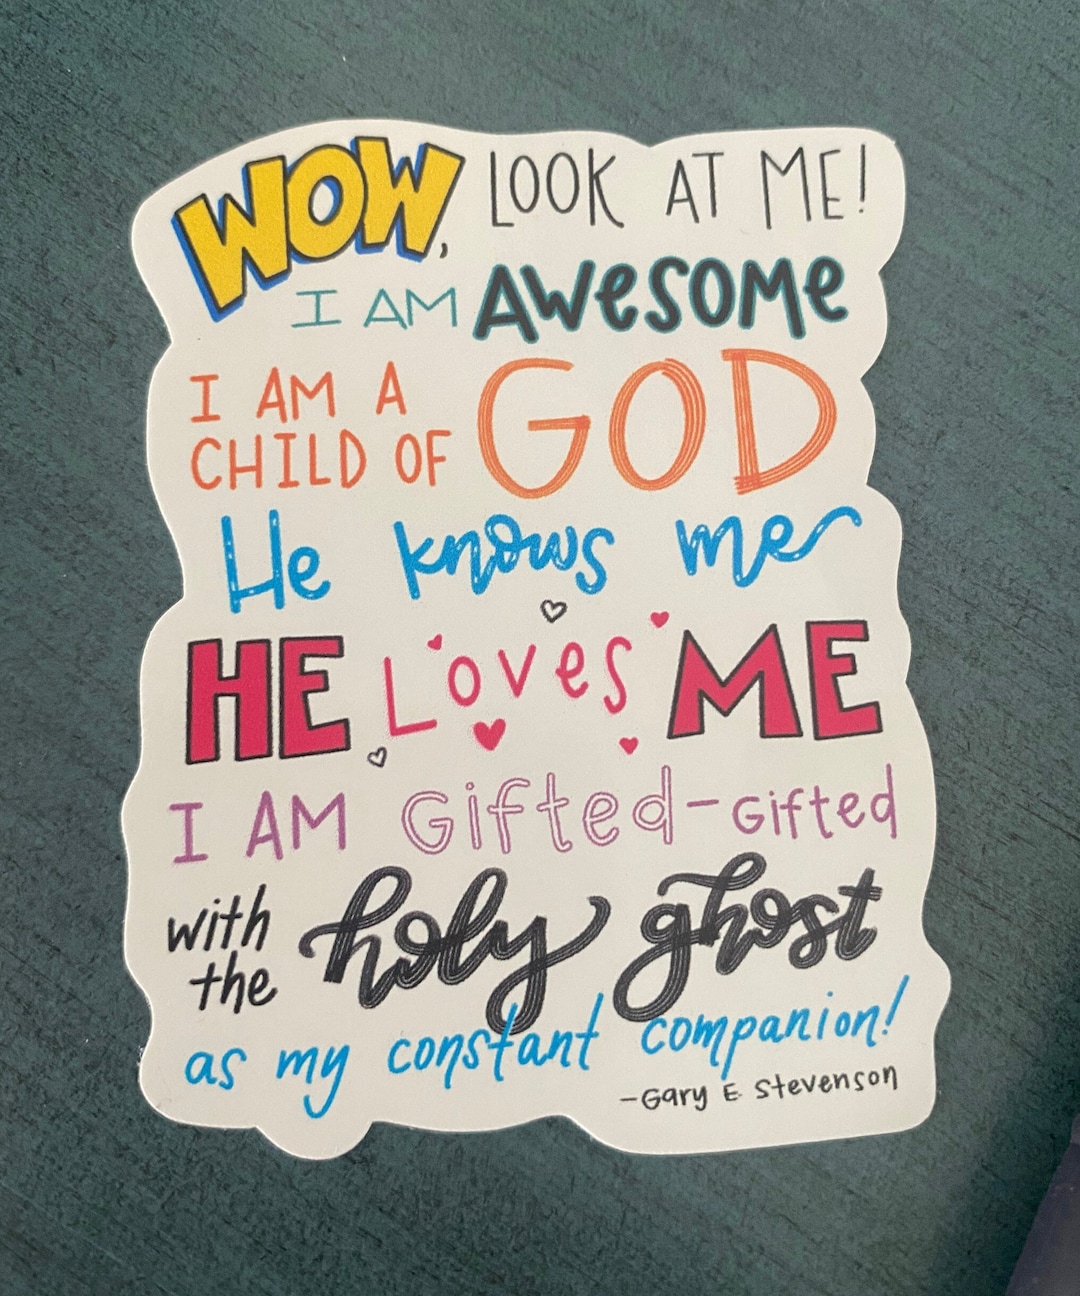 WOW, LOOK AT ME!
I AM AWeSOMe
I AM A
CHILD OF GOD
He knows me
HE Loves ME
I AM Gifted-Gifted
with
the holy ghost
as my constant companion!
-Gary E. Stevenson